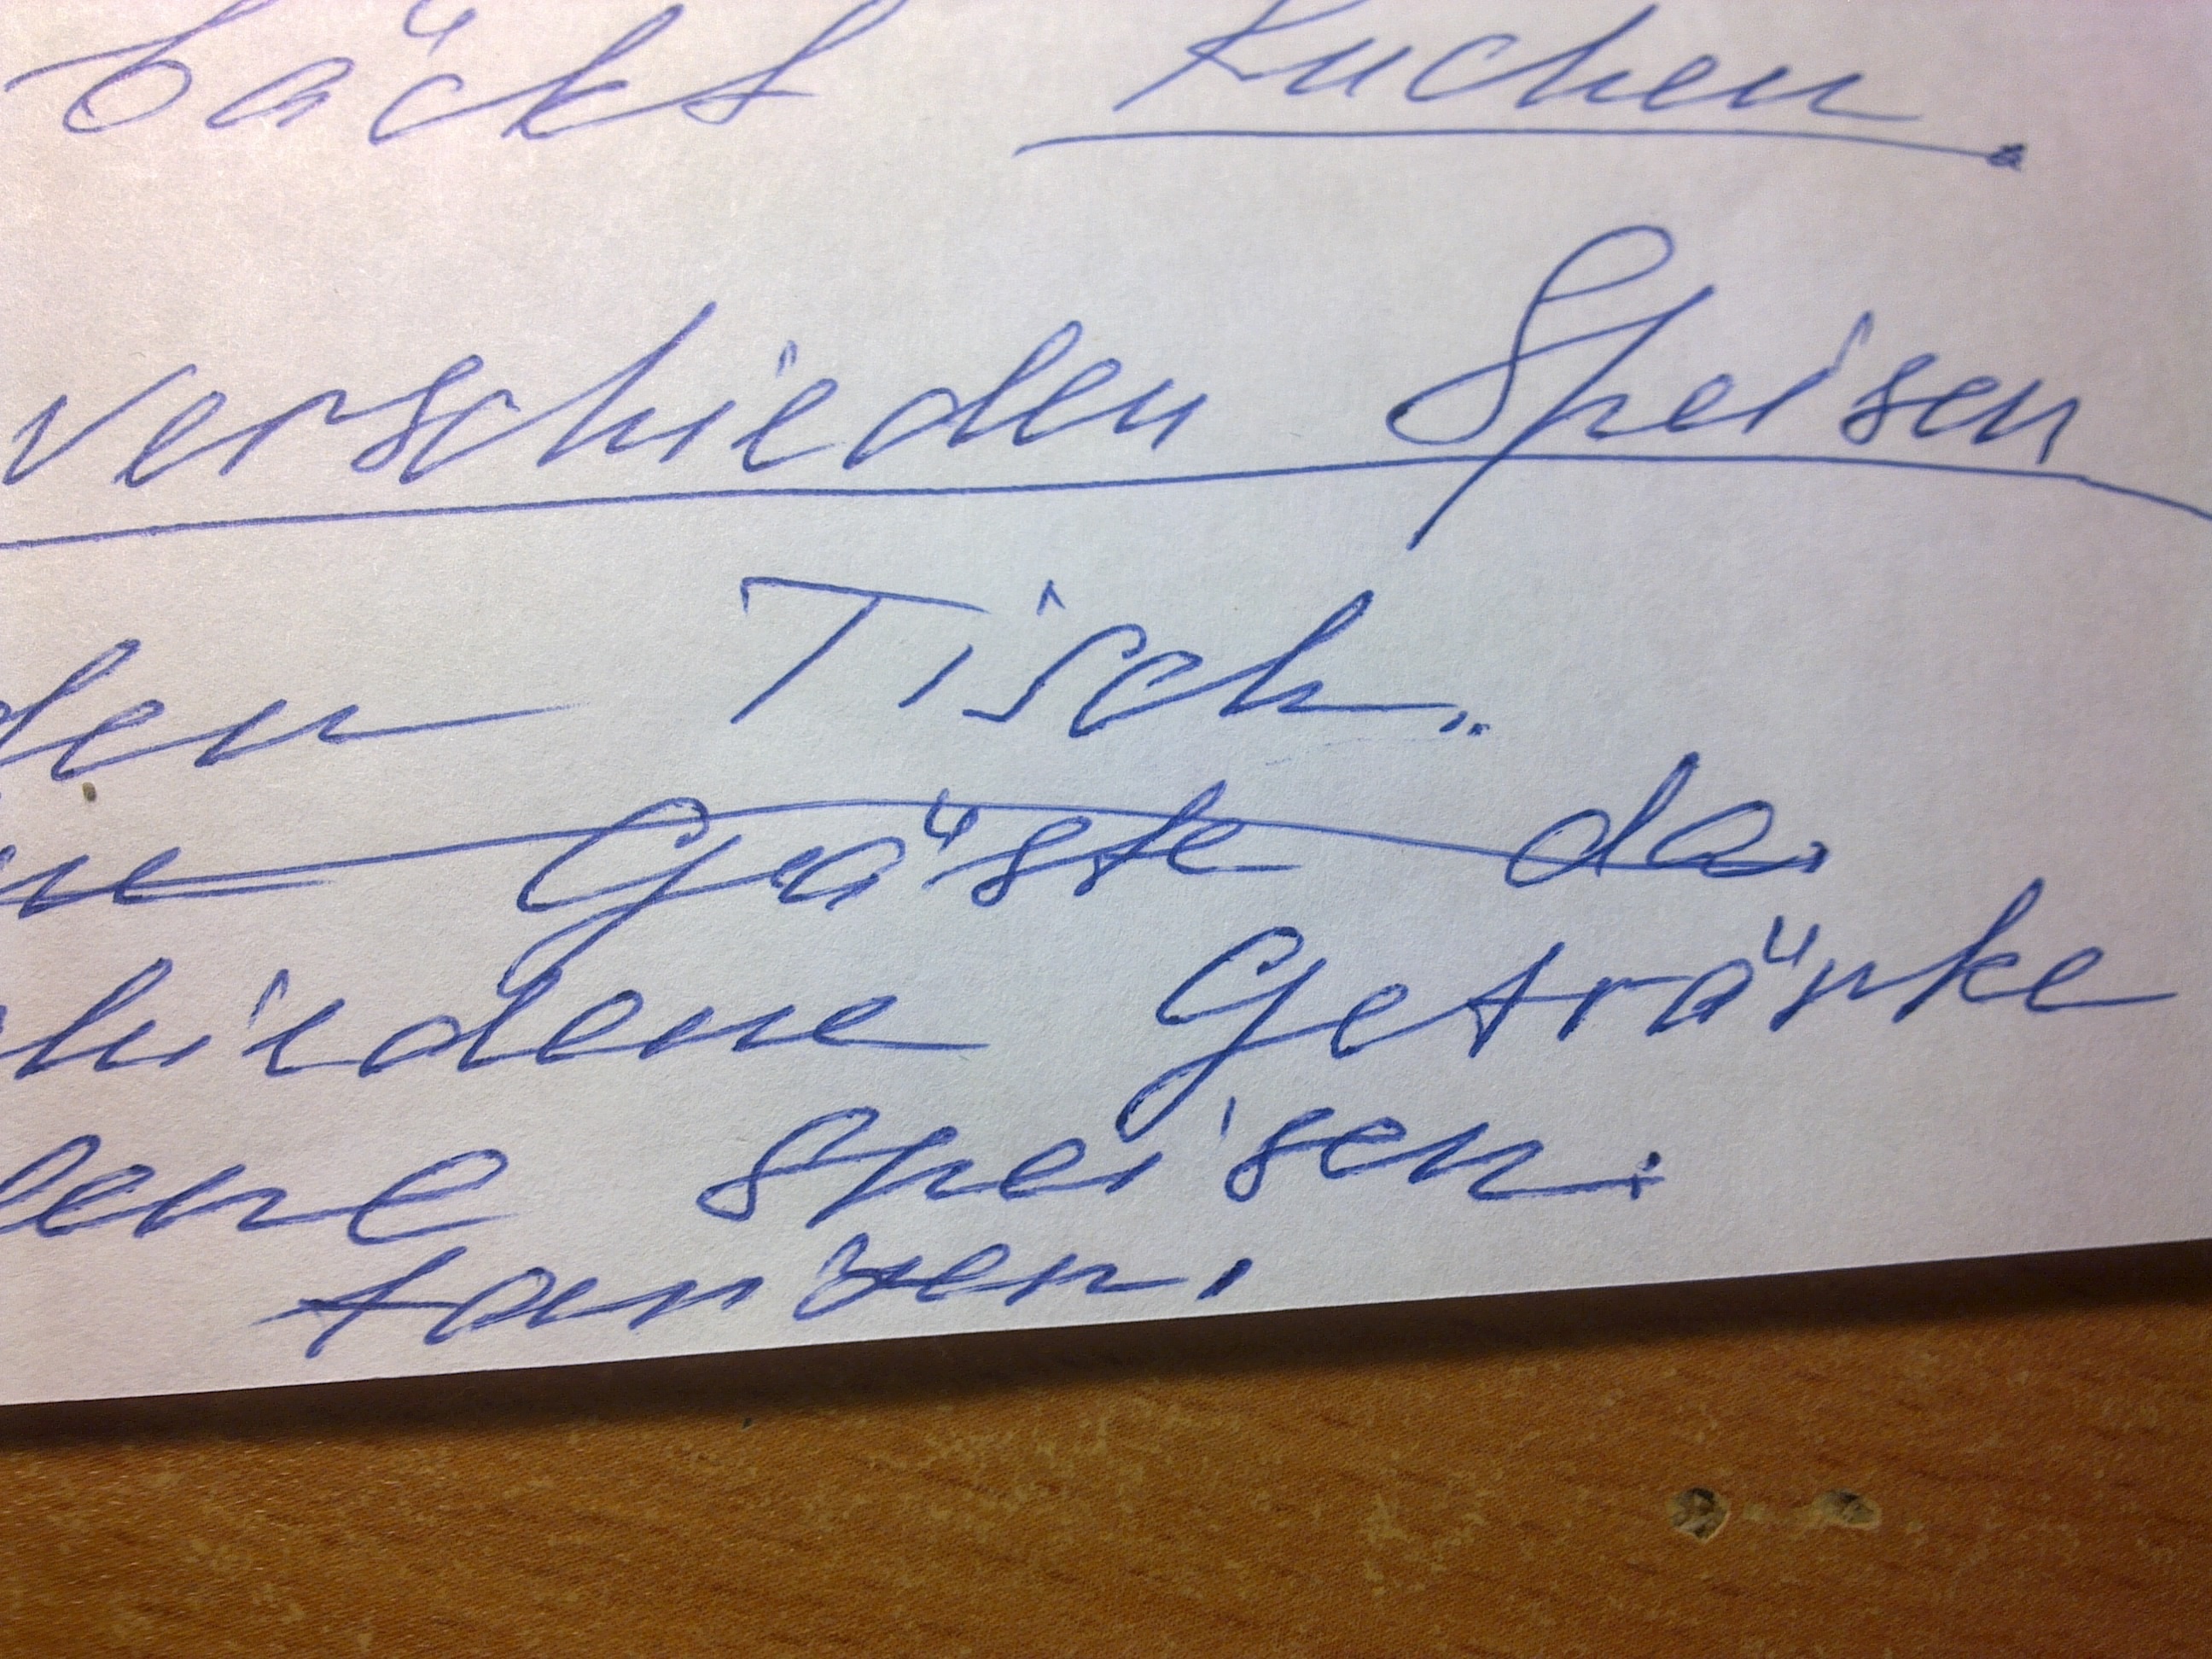 bäckt Kuchen.
verschieden Speisen
den Tisch.
Gäste da.
hiedene Getränke
dene Speisen.
tanzen.